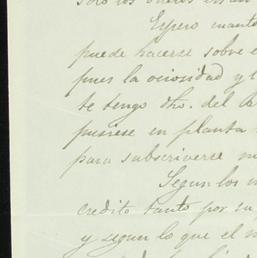 Espero cuanto
puede hacerse sobre e
pues la ociosidad y l
te tengo dho. del A
pusiese en planta
para subscriverse m
Segun los m
credito tanto por su
y seguer lo que el m